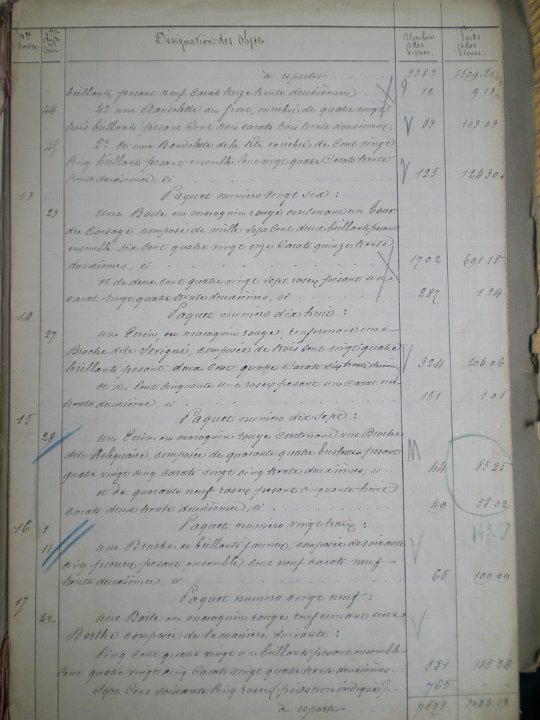 Désignation des objets
Nombre des Pierres
Poids des Pierres
à reporter 3383 1509.20
brillants, pesant neuf carats treize trente deuxièmes 12 9 13
44 4° une Bandelette du front, enrichie de quatre vingt
trois brillants pesant Cent trois carats trois trente deuxièmes 83 103 03
45 5° et une Bandelette de la tête enrichie de Cent vingt
Cinq brillants pesant ensemble Cent vingt quatre Carats trente
trente deuxièmes, ci 125 124 30
13 Paquet numéro vingt six :
23 une Boîte en maroquin rouge contenant un Tour
de Corsage composé de mille Sept Cent deux brillants pesant
ensemble six Cent quatre vingt onze Carats quinze trente
deuxièmes, ci 1702 691 15
et de deux Cent quatre vingt Sept roses pesant un
carat vingt quatre trente deuxièmes, ci 287 1 24
14 Paquet numéro dix huit :
27 un Ecrin en maroquin rouge, renfermant une
Broche dite Sévigné, composée de trois Cent vingt quatre
brillants pesant deux Cent quatre Carats six trente deuxièmes 324 204 06
et de Cent Cinquante une roses pesant un Carat un
trente deuxième, ci 151 1 01
15 Paquet numéro dix Sept :
28 un Ecrin en maroquin rouge Contenant une Broche
dite Reliquaire, composée de quarante quatre brillants pesant
quatre vingt cinq Carats vingt cinq trente deuxièmes, ci 44 85 25
et de quarante neuf roses pesant cinquante huit
carats deux trente deuxièmes, ci 49 58 02
143.27
16 Paquet numéro vingt trois :
11 une Broche en brillants jaunes, composée de soixante
cinq pierres pesant ensemble Cent neuf carats neuf
trente deuxièmes, ci 65 109 09
17 Paquet numéro vingt neuf :
42 une Boîte en maroquin rouge renfermant une
Berthe composée de la manière suivante :
Cinq Cent quatre vingt un brillants pesant ensemble
Cent quatre vingt cinq Carats vingt quatre trente deuxièmes 581 185 24
Sept Cent Soixante Cinq roses (poids non indiqué) 765
à reporter